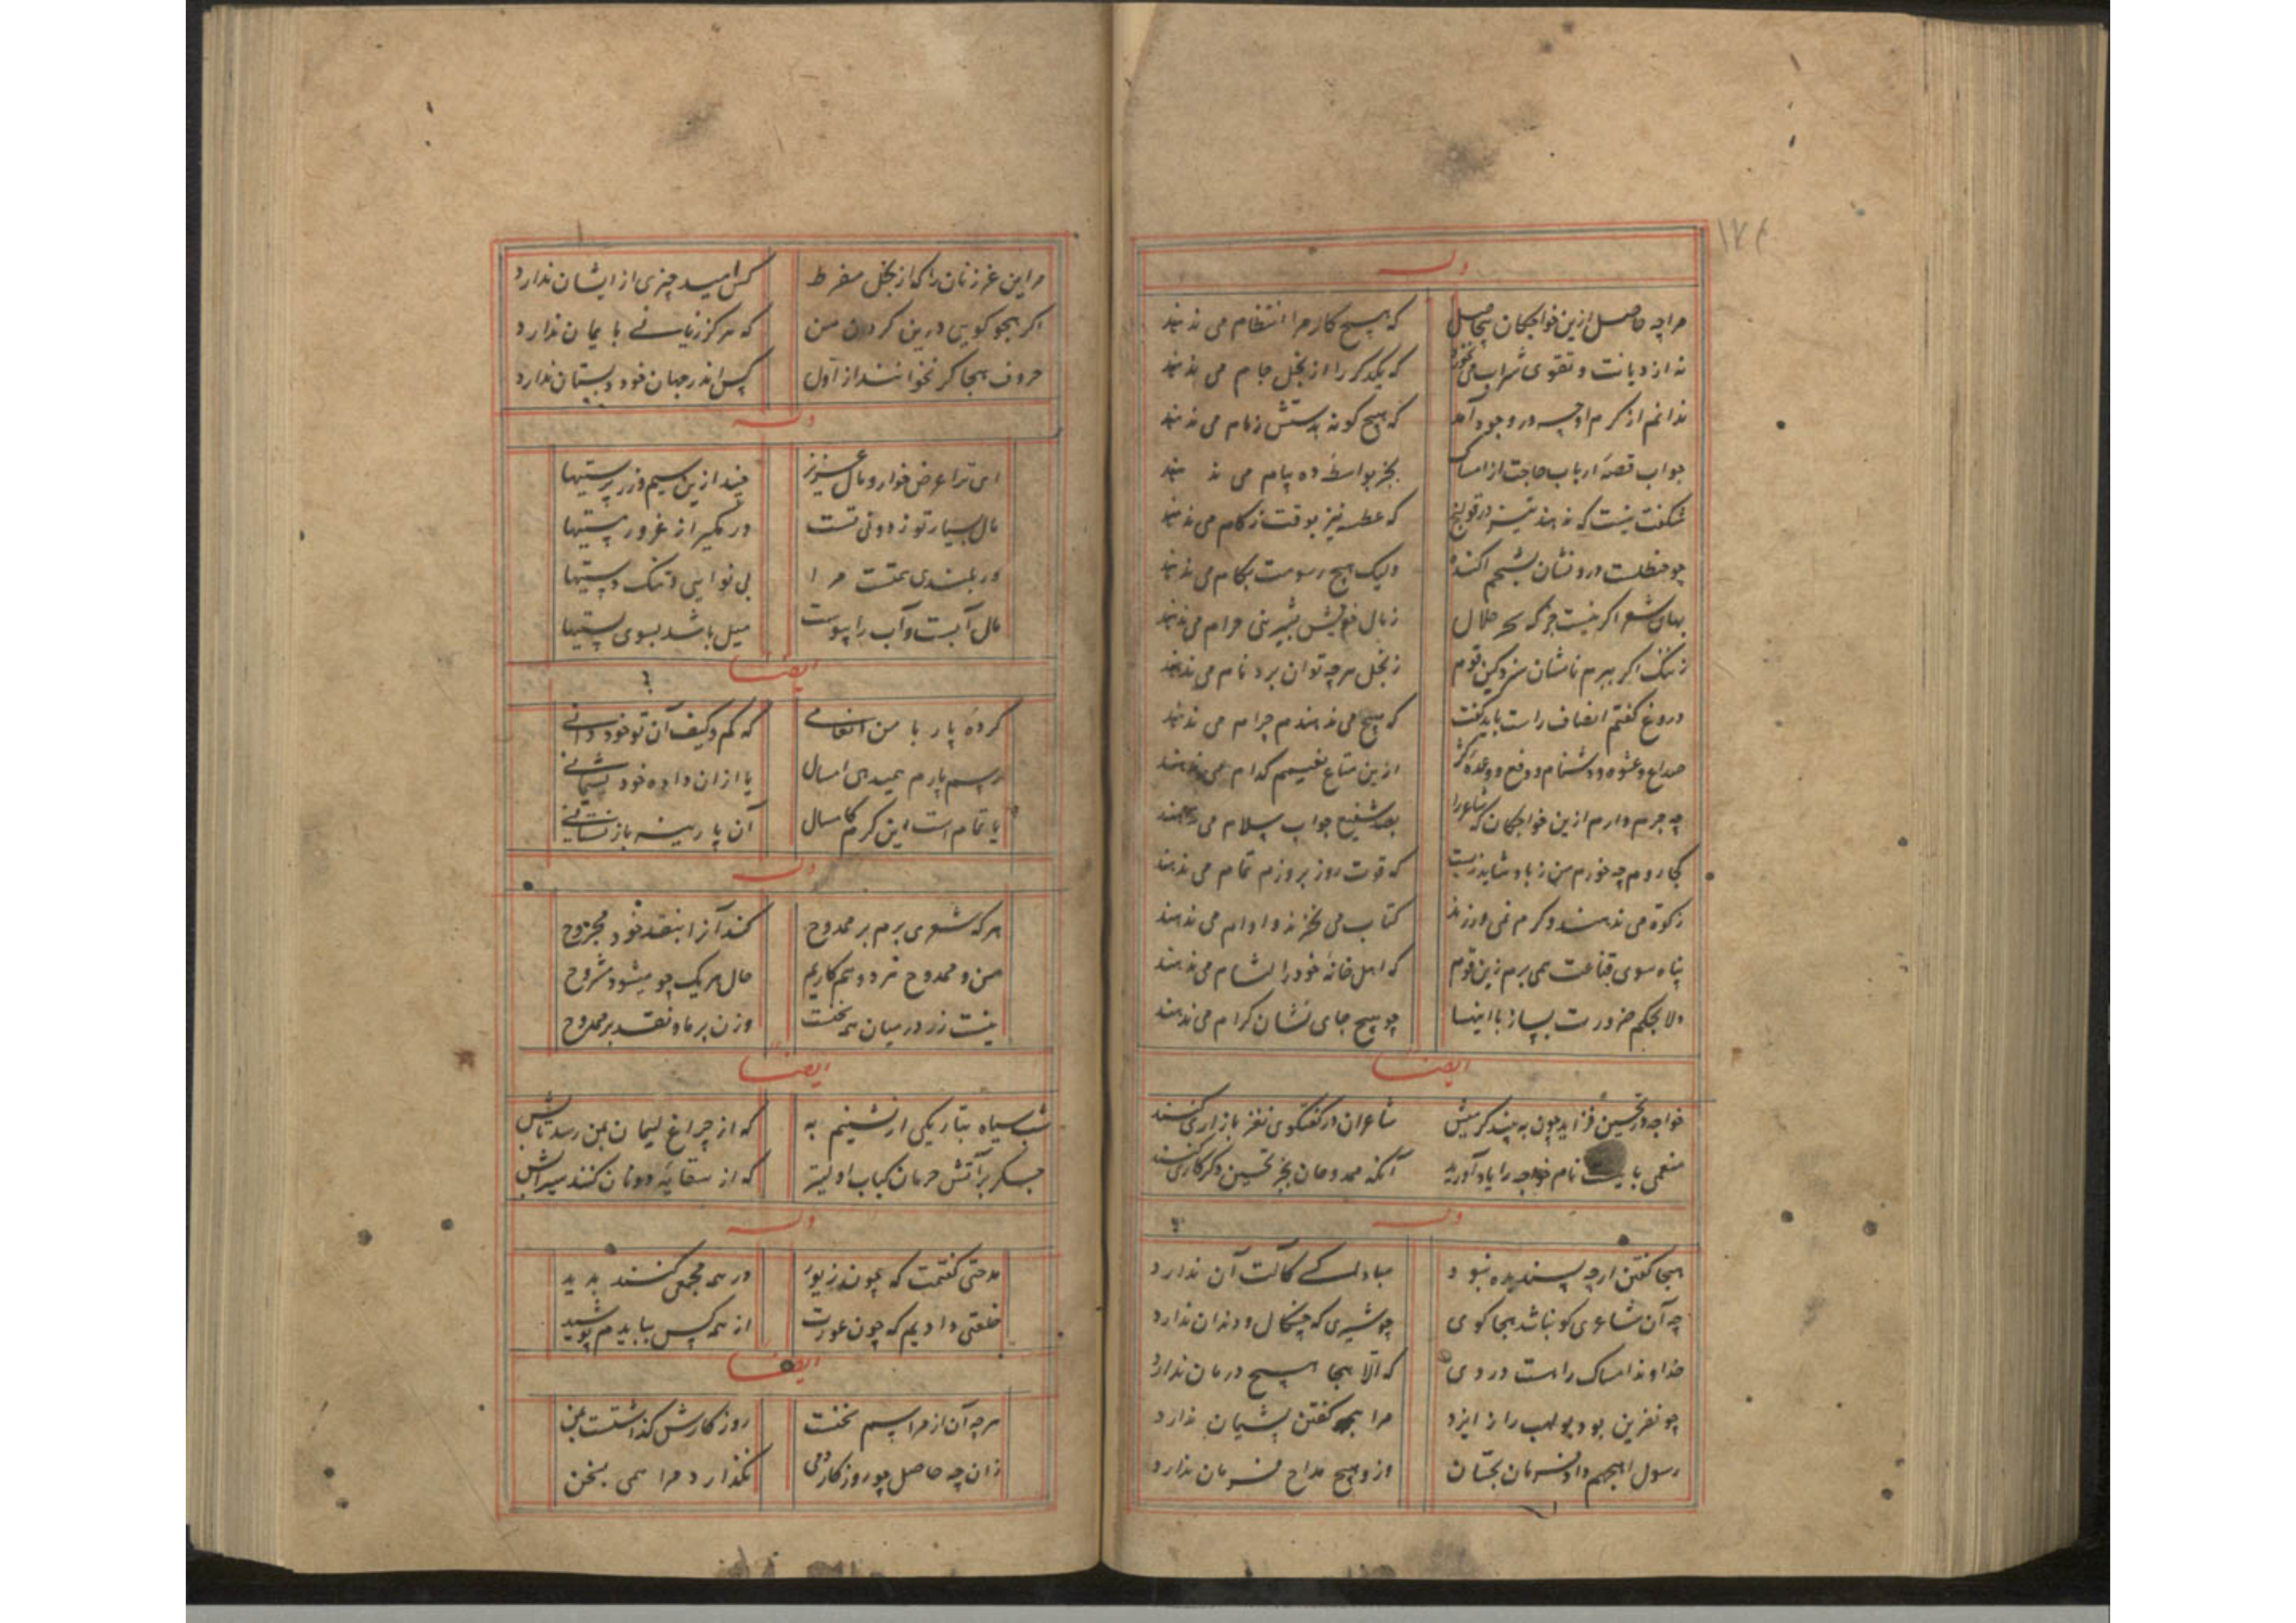 ۱۷۴
وله
مرا چه حاصل ازین خواجگان بیحاصل که هیچ کار مرا انتظام می ندهند
نه از دیانت و تقوی شراب می نخورند که یکدگر را از بخل جام می ندهند
ندانم از کرم او چه در وجود آمد که هیچ گونه بدستش زمام می ندهند
جواب قصه ارباب حاجت از امساک بجز بواسطه ده پیام می ندهند
شگفت نیست که ندهند تیز در قولنج که عطسه نیز بوقت زکام می ندهند
چو حنظلست درونشان بشحم اکنده ولیک هیچ رسومت بکام می ندهند
بهای شعر اگر نیست جز که سحر حلال زمال خویش بشیرینی حرام می ندهند
زننگ اگر ببرم نامشان سزد کین قوم زبخل هرچه توان برد نام می ندهند
دروغ گفتم انصاف راست باید گفت که هیچ می ندهندم چرام می ندهند
صداع و عشوه و دشنام و دفع و وعده کژ ازین متاع نفیسم کدام می ندهند
چه جرم دارم ازین خواجگان که شاعر را بصد شفیع جواب سلام می ندهند
کجا روم چه خورم من زباد شاید زیست که قوت روز بروزم تمام می ندهند
زکوة می ندهند و کرم نمی ورزند کتاب می نخرند و اوام می ندهند
پناه سوی قناعت همی برم زین قوم که اهل خانه خود را لشام می ندهند
دلا بحکم ضرورت بساز با اینها چو هیچ جای نشان کرام می ندهند
ایضا
خواجه در تحسین فزاید چون به بیند گرمیش شاعران در گفتگوی نغز بازاری کنند
منعمی بایست نام خواجه را یاد آورید آنکه ممدوحان بجز تحسین دگر کاری کنند
وله
هجا گفتن ارچه پسندیده نبود مبادا کسی کالت آن ندارد
چه آن شاعری کو نباشد هجا گوی چو شیری که چنگال و دندان ندارد
خداوند امساک راست دردی که الا هجا هیچ درمان ندارد
چو نفرین بود بولهب را ز ایزد مرا هجو گفتن پشیمان ندارد
رسول اهجهم داد فرمان بحسان وزو هیچ مداح فرمان ندارد
مر این غر زنان را که از بخل مفرط کس امید چیزی از ایشان ندارد
اگر هجو گویی درین کردن من که هرگز زیانی بایمان ندارد
حروف هجا گر نخوانند از اول کس اندر جهان خود دبستان ندارد
وله
ای ترا عرض خوار و مال عزیز چند ازین سیم و زر پرستیها
مال بسیار تو زدونی تست در مگیر از غرور مستیها
وز بلندی همتست مرا بی نوایی و تنگ دستیها
مال آبست و آب را پیوست میل باشد بسوی پستیها
ایضا
کرده پار با من انعامی که کم و کیف آن تو خود دانی
رسم پارم نمیدهی امسال یا از ان داده خود پشیمانی
یا تمام است این کرم کامسال آن پارینه باز نستانی
وله
هرکه شعری برم بر ممدوح کند آنرا بنقد خود مجروح
من و ممدوح هر دو همکاریم حال هر یک چو میشود مشروح
نیست زر در میان همه سخنست وزن بر ما و نقد بر ممدوح
ایضا
شب سیاه بتاریکی ار نشینم به که از چراغ لیمان بمن رسد تابش
جگر بر آتش حرمان کباب اولیتر که از سقایه دونان کنند سیرابش
وله
مدحتی گفتمت که چون زیور در همه مجمعی کنند پدید
خلعتی دادیم که چون عورت از همه کس ببایدم پوشید
ایضا
هرچه آن از مراسم سخنست روزگارش گذاشتست بمن
زان چه حاصل چو روزگار دمی نگذارد مرا همی بسخن